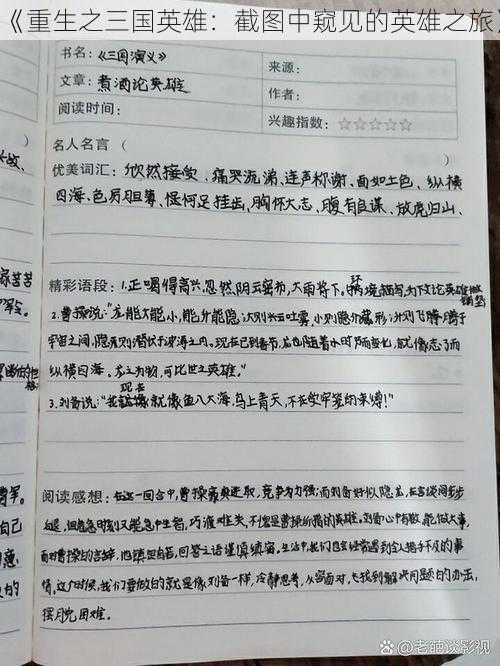 《重生之三国英雄：截图中窥见的英雄之旅
书名：《三国演义》
来源：
文章：煮酒论英雄
作者：
阅读时间：
兴趣指数：☆☆☆☆☆
名人名言（ ）
优美词汇：欣然接受、痛哭流涕、连声称谢、面如土色、纵横
四海、色厉胆薄、怪何足挂齿、胸怀大志、腹有良谋、放虎归山、
精彩语段：1.正喝得高兴，忽然，阴云密布，大雨将下。环境描写，为下文论英雄做铺垫
2.曹操说："龙能大能小，能升能隐；大则兴云吐雾，小则隐介藏形；升则飞腾于
宇宙之间，隐则潜伏于波涛之内。现在已到春节，龙也随着小时节而变化，就像志
纵横四海。龙之为物，可比世之英雄。"
3.刘备说："我现在就像鱼入大海，鸟上青天，不在受牢笼的束缚！"
阅读感想：在这一回合中，曹操
退，但危急时刻又能急中生智，巧渡难关，不愧是曹操所指的英雄。刘备心中有数，能做大事，
面对曹操的言辞，他镇定自若，回答之语谨慎缜密。生活中，我们也会经常遇到令人措手不及的事
情，这个时候，我们要做的就是像刘备一样，冷静思考，从容面对，去找到解决问题的办法，
摆脱困难。
自己
的
@老皕谈影视